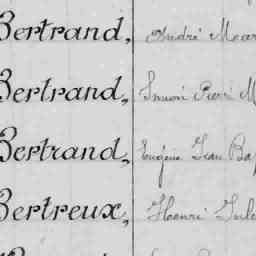 Bertrand, André Mar
Bertrand, Simon Pierre M
Bertrand, Eugène Jean Bap
Bertreux, Henri Jule